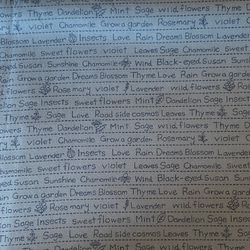 owers Thyme Dandelion Mint Sage wild flowers Thyme
violet Chamomile Grow a garden Rosemary violet
Blossom Lavender Insects Love Rain Dreams Blossom Lavender
Chamomile sweet flowers violet Leaves Sage Chamomile sweet
eyed Susan Sunshine Chamomile Wind Black-eyed Susan
Grow a garden Dreams Blossom Thyme Love Rain Grow a garden
flowers Rosemary violet Lavender wild flowers
Dandelion Sage Insects sweet flowers Mint Dandelion Sage
owers Thyme Sage Love Roadside cosmos Leaves Thyme
owers Thyme Dandelion Mint Sage wild flowers Thyme
violet Chamomile Grow a garden Rosemary violet
Blossom Lavender Insects Love Rain Dreams Blossom Lavender
Chamomile sweet flowers violet Leaves Sage Chamomile sweet
eyed Susan Sunshine Chamomile Wind Black-eyed Susan
Grow a garden Dreams Blossom Thyme Love Rain Grow a garden
flowers Rosemary violet Lavender wild flowers Rose
Dandelion Sage Insects sweet flowers Mint Dandelion Sage
Thyme Sage Love Roadside cosmos Leaves Thyme
owers Thyme Dandelion Mint Sage wild flowers